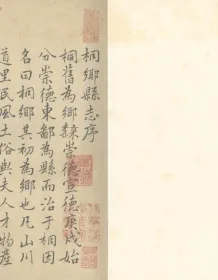 桐鄉縣志序
桐舊為鄉隸崇德宣德庚戌始
分崇德東鄙為縣而治于桐因
名曰桐鄉其初為鄉也凡山川
道里民風土俗與夫人才物產